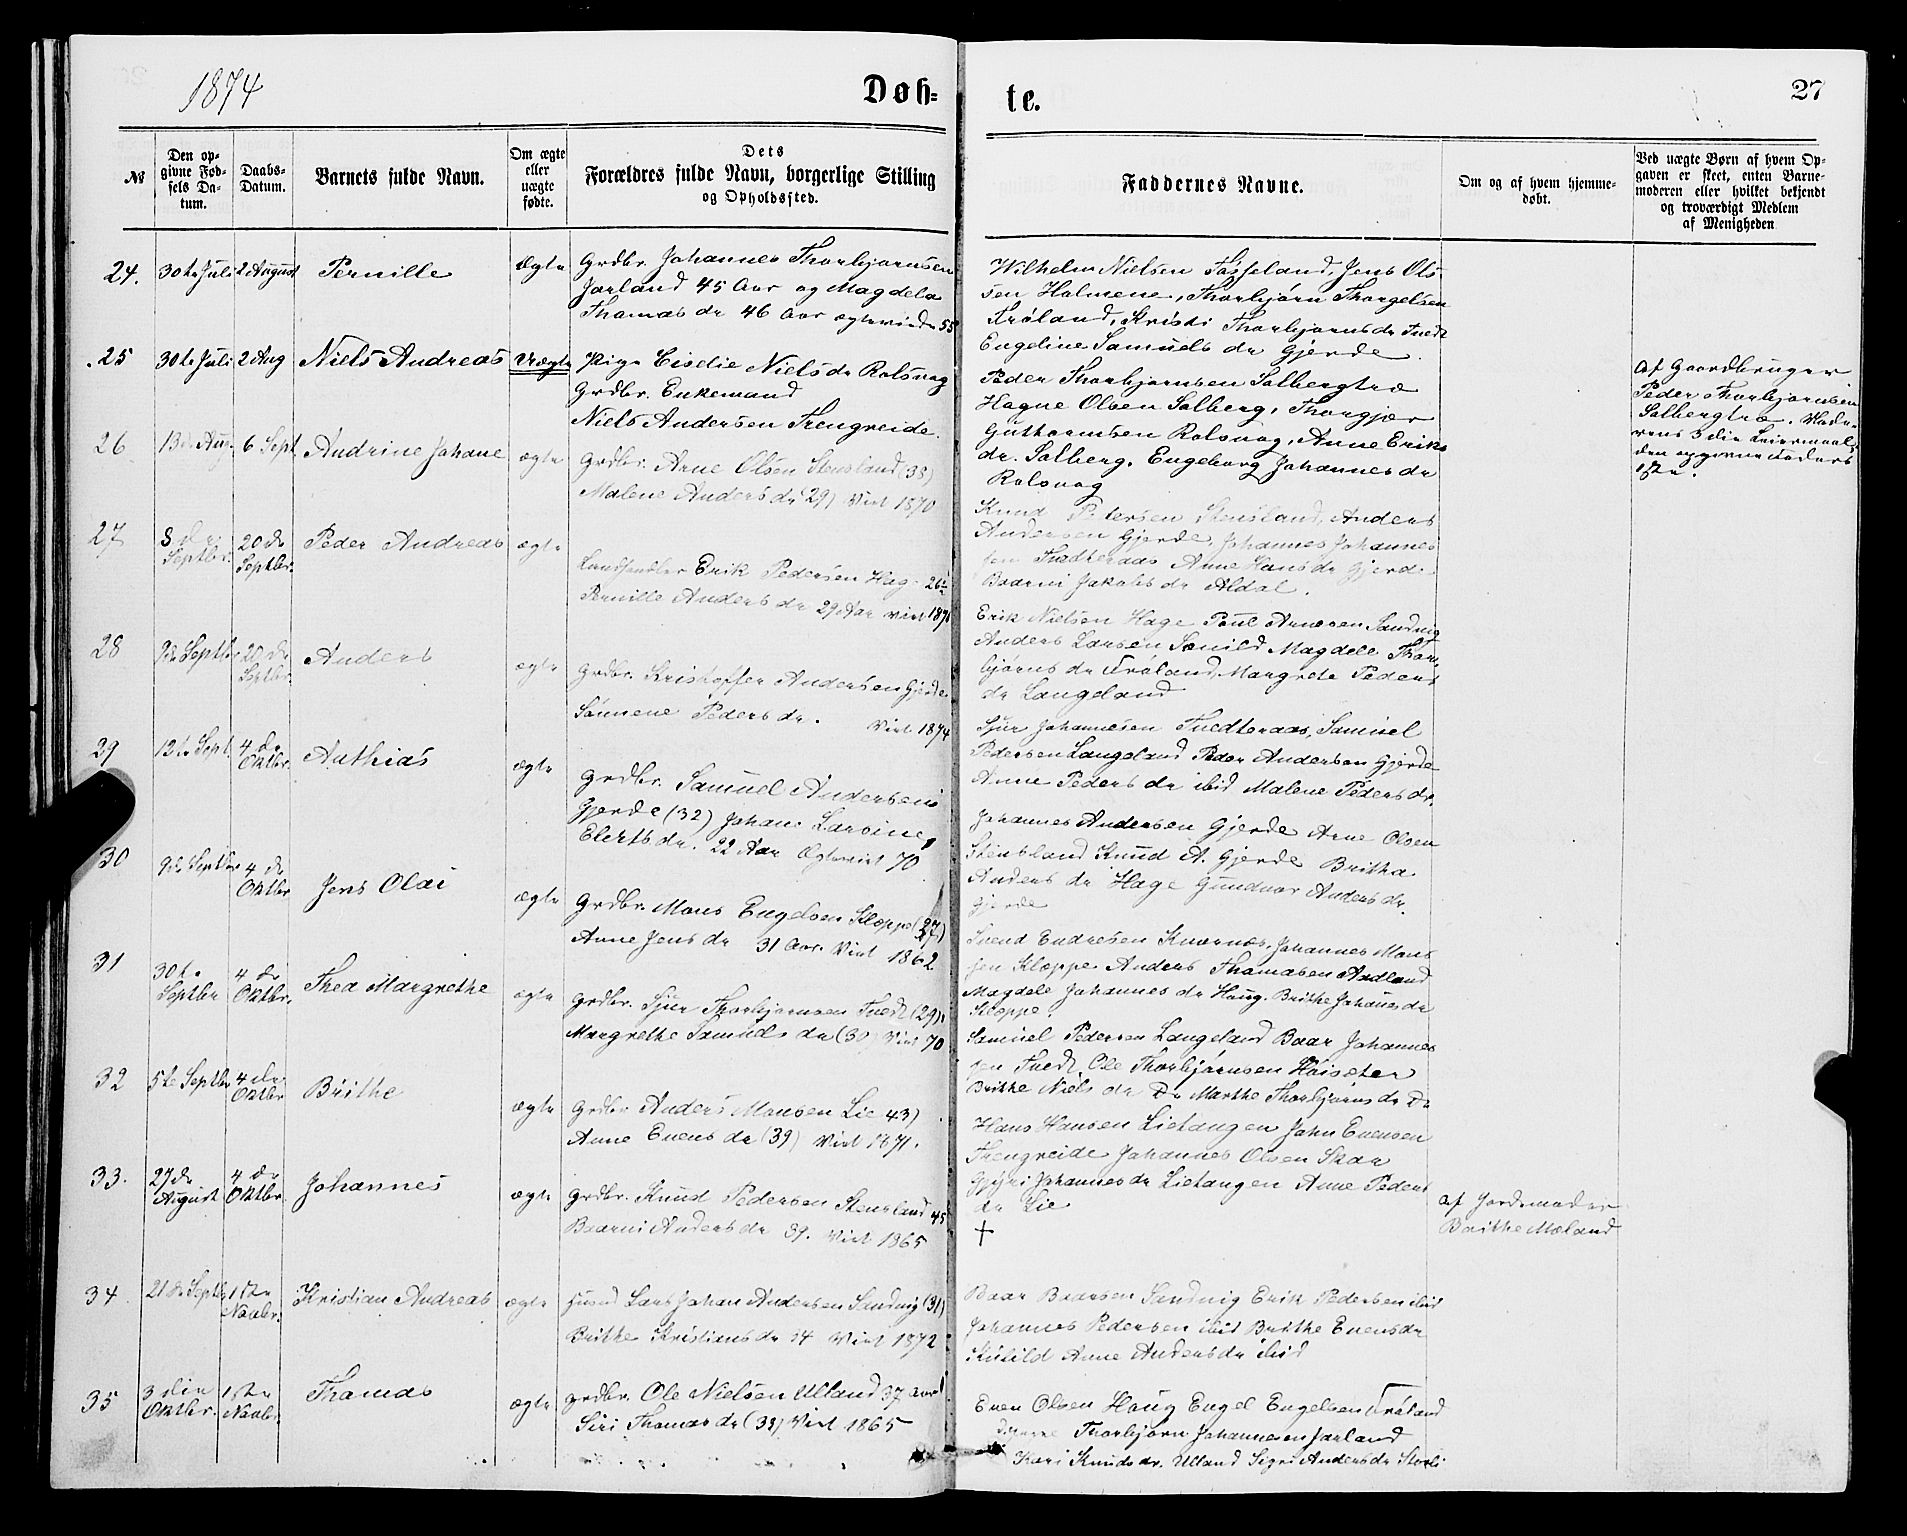 1874
Døb-
te.
27
№
Den op-
givne Fød-
sels Da-
tum.
Daabs-
Datum.
Barnets fulde Navn.
Om ægte
eller
uægte
fødte.
Dets
Forældres fulde Navn, borgerlige Stilling
og Opholdssted.
Faddernes Navne.
Om og af hvem hjemme-
døbt.
Ved uægte Børn af hvem Op-
gaven er skeet, enten Barne-
moderen eller hvilket bekjendt
og troværdigt Medlem
af Menigheden
24.
30te Juli
2 August
Pernille
Ægte
Grdbr. Johannes Thorbjørnsen
Jarland 45 Aar og Magdela
Thomas dr 46 Aar
Wilhelm Nielsen Fosseland, Jens Ols-
sen Holmene, Thorbjørn Thorgelsen
Frøland, Kristi Thorbjørns dr Tvedt
Engeline Samuels dr Gjerde.
25
30te Juli
2 Aug
Niels Andreas
Uægte
Pige Niels dr Rolsvog
Grdbr. Enkemand
Niels Andersen Trengreide.
Peder Thorbjørnsen Solbergtræ
Hagne Olsen Solberg, Thorgjer
Guthormsen Rolsvog, Anne Eriks
dr. Solberg, Engeborg Johannes dr
Rolsvog
af Gaardbruger
Peder Thorbjørnsen
Solbergtræ. Mode-
rens 3die Leiermaal
den opgivne Faders
1ste.
26
13de Aug.
6 Sept
Andrine Johane
ægte
Grdbr. Arne Olsen Stensland (38)
Malene Anders dr 29) Viet 1870
Knud Petersen Stensland, Anders
Andersen Gjerde, Johannes Johannes
sen Tvedteraas Anne Hans dr Gjerde
Baarni Jakobs dr Aldal.
27
8de
Septbr.
20de
Septbr.
Peder Andreas
ægte
Landhandler Erik Pedersen Hage 26
Pernille Anders dr 29 Aar Viet
Erik Nielsen Hage Poul Arnesen Sandvig
Anders Larsen Magdele Thor-
bjørns dr Frøland, Margrete Peders
dr Langeland
28
9de Septbr
20de
Septbr.
Anders
ægte
Grdbr. Kristoffer Andersen Gjerde
Peders dr. Viet 1874
Sjur Johannesen Tvedteraas, Samuel
Pedersen Langeland Peder Andersen Gjerde
Anne Peders dr ibid Malene Peders dr.
29
12te Sept.
4de
Oktbr.
Mathias
ægte
Grdbr. Samuel Andersen
Gjerde (32) Johane Larsine
Elerts dr. 22 Aar Ægteviet 70
Johannes Andersen Gjerde Arne Olsen
Stensland Knud A. Gjerde Britha
Anders dr Hage Gundvor Anders dr.
Gjerde
30
9de Septbr
4de
Oktbr
Jens Olai
ægte
Grdbr. Mons Engelsen Kloppe (37)
Anne Jens dr 31 Aar. Viet 1862
Svend Endresen Knarnes, Johannes Mons
sen Kloppe Anders Thomasen Aadland
Magdele Johannes dr Haug. Brithe Johannes dr
Kloppe.
31
30te
Septbr
4de
Oktbr.
Thea Margrethe
ægte
Grdbr. Sjur Thorbjørnsen Tvedt (29)
Margrethe Samuels dr (30) Viet 70
Samuel Pedersen Langeland Baar Johannes
sen Tvedt, Ole Thorbjørnsen Høisæter
Brithe Niels dr Do Marthe Thorbjørns dr Do
32
5te Septbr
4de
Oktbr
Brithe
ægte
Grdbr Anders Monsen Lie 43)
Anne Evens dr (39) Viet 1871.
Hans Hansen Lietangen John Evensen
Trengreide Johannes Olsen Skar
Gjøri Johannes dr Lietangen Anne Peders
dr Lie
33.
27de
August
4de
Oktbr
Johannes
ægte
Grdbr. Knud Pedersen Stensland 45
Baarni Anders dr 39. Viet 1865
†
af Jordemoder
Brithe Mæland
34
21de Septbr
1ste
Novbr.
Kristian Andreas
ægte
Husmd Lars Johan Andersen Sandvig (31)
Brithe Kristians dr 34 Viet 1872
Baar Baarsen Sandvig Erik Pedersen ibid
Johannes Pedersen ibid Brithe Evens dr
Anne Anders dr ibid
35
3die
Oktbr.
1ste
Novbr
Thomas
ægte
Grdbr. Ole Nielsen Ulland 37 Aar
Siri Thomas dr (38) Viet 1865
Even Olsen Haug Engel Engelsen Frøland
Thorbjørn Johannesen Jarland
Kari Knuds dr. Ulland Sigri Anders dr